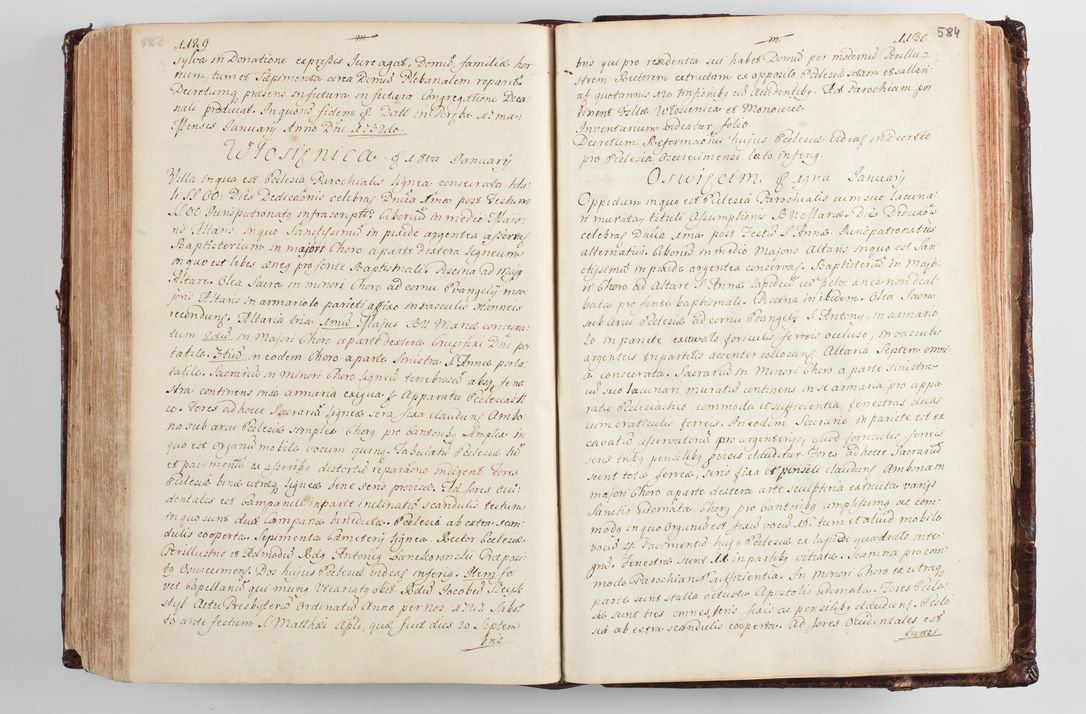 1189
sylva in Donatione expressis Jure agat. Domus familiæ hor
reum, tum et Sepimenta circa Domum Plebanalem reparet.
Decretumq præsens in futura in futura Congregatione Deca
nali producat. In quorum fidem &. Datt in
January Anno Dni 1732do.
Włosienica. & 18va January
Villa in qua est Ecclesia Parochialis lignea consecrata titu
li SS. OO. Dies Dedicationis celebrat Dnica 1ma post Festum
SS. OO. Juris patronatus infrascripti. Ciborium in medio Majo
ris Altaris in quo Sanctissimum in pixide argentea asservat.
Baptisterium in majori Choro a parte dextera ligneum
in quo est lebes æneus pro fonte Baptismali. Piscina ad Majus
Altare. Olea Sacra in minori Choro ad cornu Evangelij ma
joris Altaris in armariolo parieti affixo in vasculis stanneis
recondunt. Altaria tria 1mum Majus B.V. Mariæ consecra
tum 2dum in Majori Choro a parte dextera Crucifixi Dni por
tatile. 3tium in eodem Choro a parte Sinistra S. Annæ porta
tatile. Sacrarium in minori Choro ligneum tenebrosum absq fene
stra continens in se armaria exigua pro Apparatu Ecclesiasti
co. Fores ad hocce Sacrarium ligneæ sera fixa claudunt. Ambo
na sub arcu Ecclesiæ simplex. Chorus pro Cantoribus Amplus in
quo est Organum mobile vocum quinq. Tabulatum Ecclesiæ
et pavimentum ex asseribus distortis reparatione indigent. Fores
Ecclesiæ binæ utræq ligneæ bene seris provisæ. Ad fores Occi:
dentales est Campanile in parte inclinatum scandulis tectum
in quo sunt duæ Campanæ benedictæ. Ecclesia ab extra scan
dulis cooperta. Sepimenta Cæmeterij lignea. Rector Ecclesiæ
Perillustris et Admodum Rdus Antonius Lanckoronski Præposi
tus Osvecimensis. Dos hujus Ecclesiæ videat inferius. Item fo
vet Capellanum qui munus Vicariatus obit Rdum Jacobum
Actu Presbyterum Ordinatum Anno per nos 1727 Sabat
to ante festum S. Matthæi Apli, quæ fuit dies 20 Septem
bris

1130 584
bris qui pro residentia sua habet Domum per modernum Perillu:
strem Rectorem extructam ex opposito Ecclesiæ
quotannis 120 cum Accidentibus. Ad Parochiam per
tinent Villæ Włosienica et Monowice
Inventarium videatur folio
Decretum Reformationis hujus Ecclesiæ videat in Decreto
pro Ecclesia Osvecimensi lato inferius.
Oswięcim & 19na January
Oppidum in quo est Ecclesia Parochialis cum suo lacuna
ri murata, tituli Assumptionis B.V. Mariæ. Dies Dedicationis
celebrat Dnica 1ma post Festum S. Annæ. Juris patronatus
alternativi. Ciborium in medio Majoris Altaris in quo est San
ctissimum in pixide argentea conservat. Baptisterium in Majo
ri Choro ad Altare S. Annæ lapideum cum pelvi ænea non deal
bata pro fonte baptismali. Piscina inibidem. Olea Sacra
sub arcu Ecclesiæ ad cornu Evangely S. Antony, in armario
lo in pariete excavato foriculis ferreis occluso, in vasculis
argenteis tripartitis decenter collocant. Altaria Septem omni
a consecrata. Sacrarium in Minori Choro a parte sinistra
cum suo lacunari muratum continens in se armaria pro appa
ratu Ecclesiastico commoda et sufficientia, fenestras duas
cum craticulis ferreis. In eodem Sacrario in pariete est ex
cavatum asservatorium pro argenterijs, quod foriculis ferreis
seris tribus pensilibus fixis clauditur. Fores ad hocce Sacrarium
sunt totæ ferreæ, seris fixa et pensili claudunt. Ambonam
majori Choro a parte dextera arte sculptoria extructa varijs
Sanctis adornata. Chorus pro Cantoribus amplissimus ac com
modus in quo Organum est vocum 18. tum et aliud mobile
vocum 4. Pavimentum hujus Ecclesiæ ex lapide quadrato inte
grum. Fenestræ sunt 11 in partibus vitratæ. Scamna pro com
modo Parochianorum sufficientia. In Minori Choro ex utraq
parte sunt stalla vetusta Apostolis adornata. Fores Eccle:
siæ sunt tres omnes, seris fixis ac pensilibus claudunt. Eccle
sia ab extra scandulis cooperta. Ad fores Occidentales est
turris